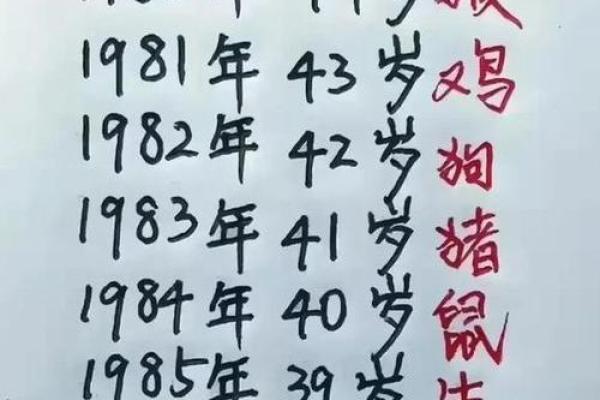 1981年 43岁 鸡
1982年 42岁 狗
1983年 41岁 猪
1984年 40岁 鼠
1985年 39岁